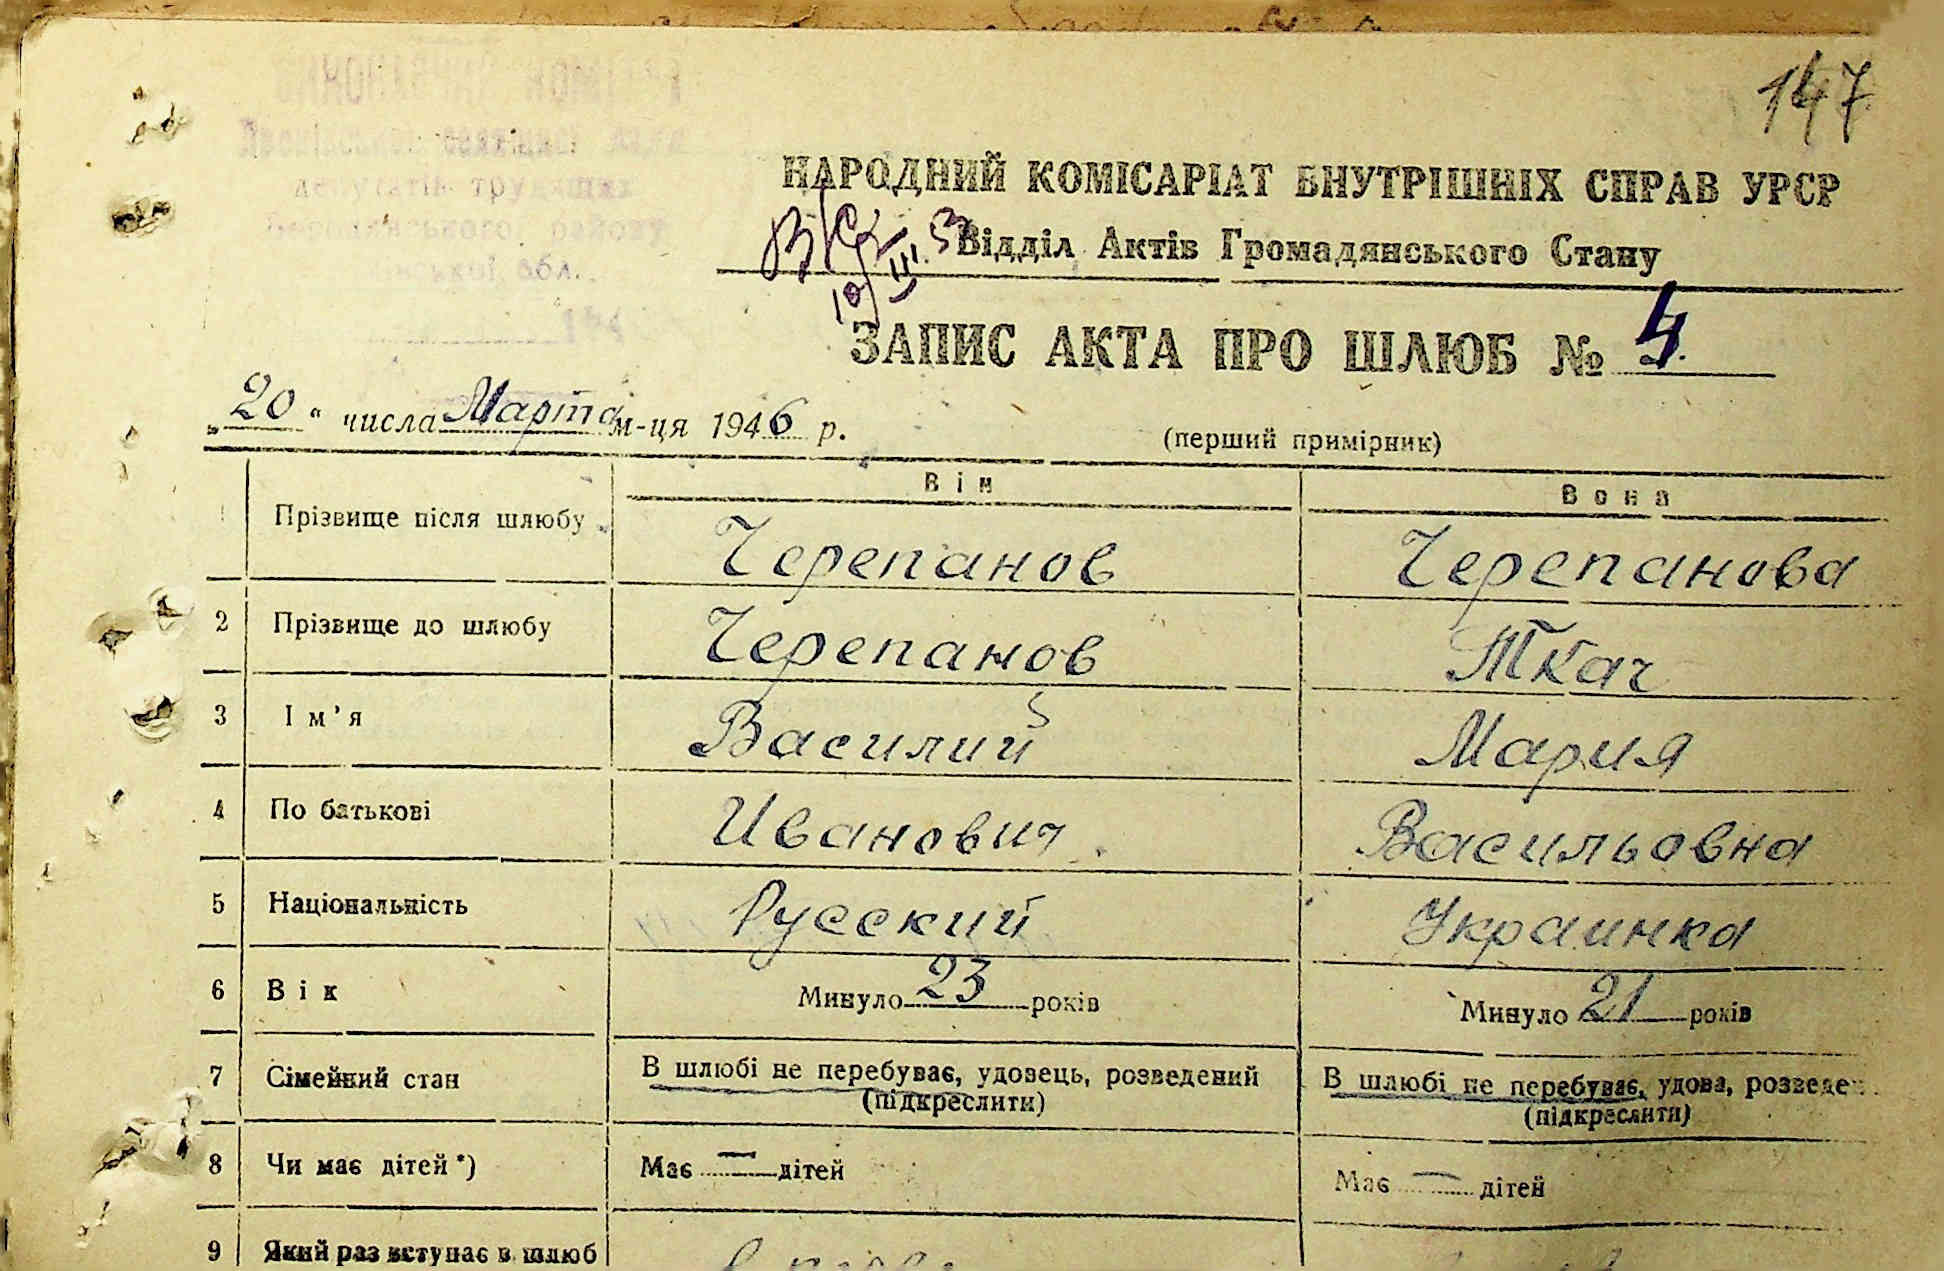 147
ВИКОНАВЧИЙ КОМІТЕТ
депутатів трудящих
Бородянського району
Київської обл.
194
НАРОДНИЙ КОМІСАРІАТ ВНУТРІШНІХ СПРАВ УРСР
Відділ Актів Громадянського Стану
ЗАПИС АКТА ПРО ШЛЮБ № 4
„20“ числа Марта м-ця 1946 р.
(перший примірник)
Він Вона
1 Прізвище після шлюбу Черепанов Черепанова
2 Прізвище до шлюбу Черепанов Ткач
3 Ім’я Василий Мария
4 По батькові Иванович Васильовна
5 Національність Русский Украинка
6 Вік Минуло 23 років Минуло 21 років
7 Сімейний стан В шлюбі не перебуває, удовець, розведений В шлюбі не перебуває, удова, розведе
(підкреслити) (підкреслити)
8 Чи має дітей*) Має — дітей Має — дітей
9 Який раз вступає в шлюб